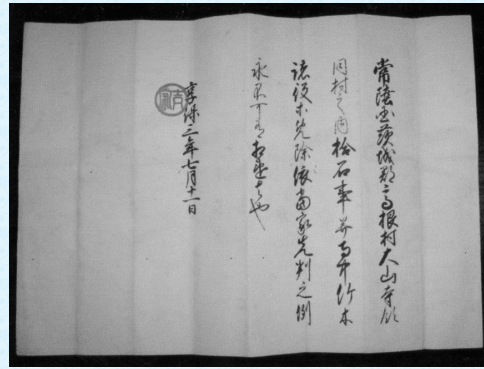 常陸国茨城郡高根村大山寺領
同村之内拾石事并寺中竹木
諸役等免除依當家先判之例
永不可有相違者也
享保三年七月十一日